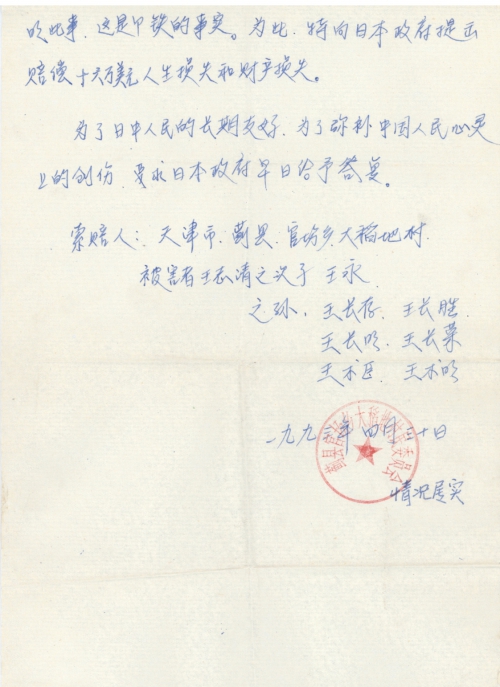 明此事，这是甲铁的事实。为此，特向日本政府提出
赔偿十六万美元人生损失和财产损失。
为了日中人民的长期友好，为了弥补中国人民心灵
上的创伤，要求日本政府早日给予答复。
索赔人：天津市，蓟县，官场乡，大稻地村，
被害者王志清之次子 王永
之孙，王长存，王长胜，
王长明，王长荣
王术臣，王术明
一九九三年四月三十日
蓟县官场乡大稻地村民委员会
情况属实